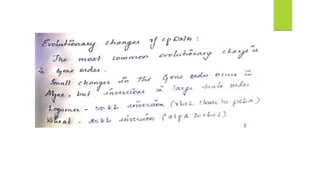 Evolutionary changes of cpDNA:
The most common evolutionary change is
in gene order.
Small changes in the gene order occurs in
Algae, but inversions in large scale order.
Legumes - 50 kb inversion (rbcL closer to psbA)
Wheat - 20kb inversion (atpA to rbcL)